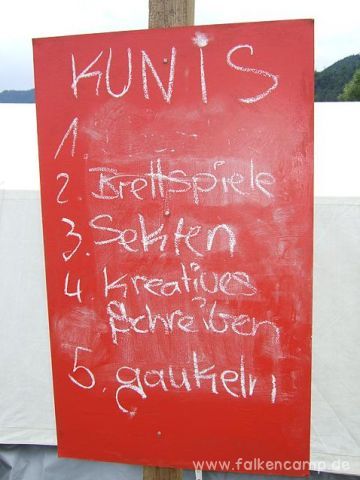 KUNiS
1.
2. Brettspiele
3. Sekten
4. kreatives
schreiben
5. gaukeln
www.falkencamp.de